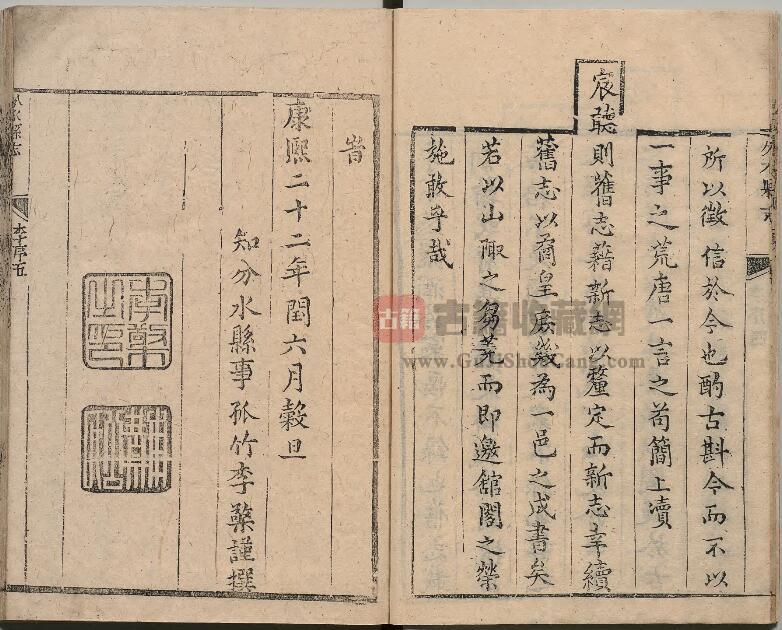 所以徵信於今也酌古斟今而不以
一事之荒唐一言之苟簡上瀆
宸聽則舊志藉新志以釐定而新志幸續
舊志以矞皇庶幾為一邑之成書矣
若以山陬之芻蕘而即邀舘閣之榮
施敢乎哉
旹
康熙二十二年閏六月穀旦
知分水縣事孤竹李櫱謹撰
李序五
古籍
古籍收藏網
www.GuJiShouCang.com